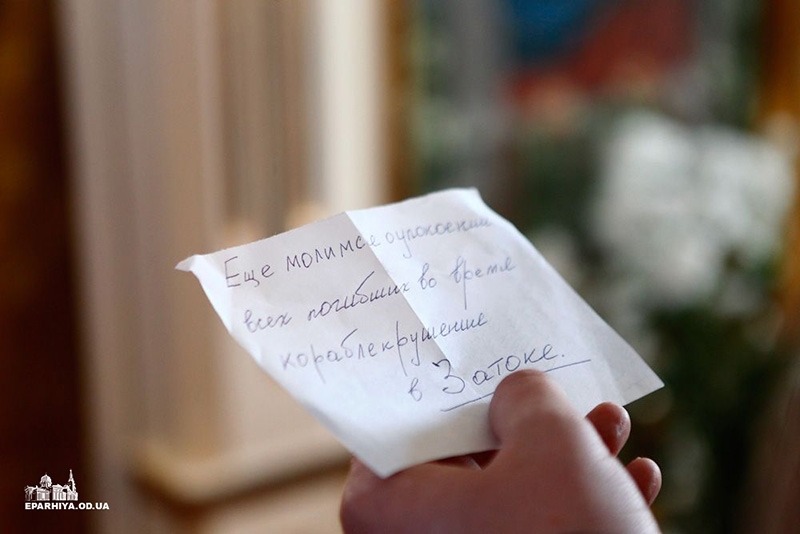 Еще молимся о упокоении
всех погибших во время
кораблекрушение
в Затоке.
EPARHIYA.OD.UA